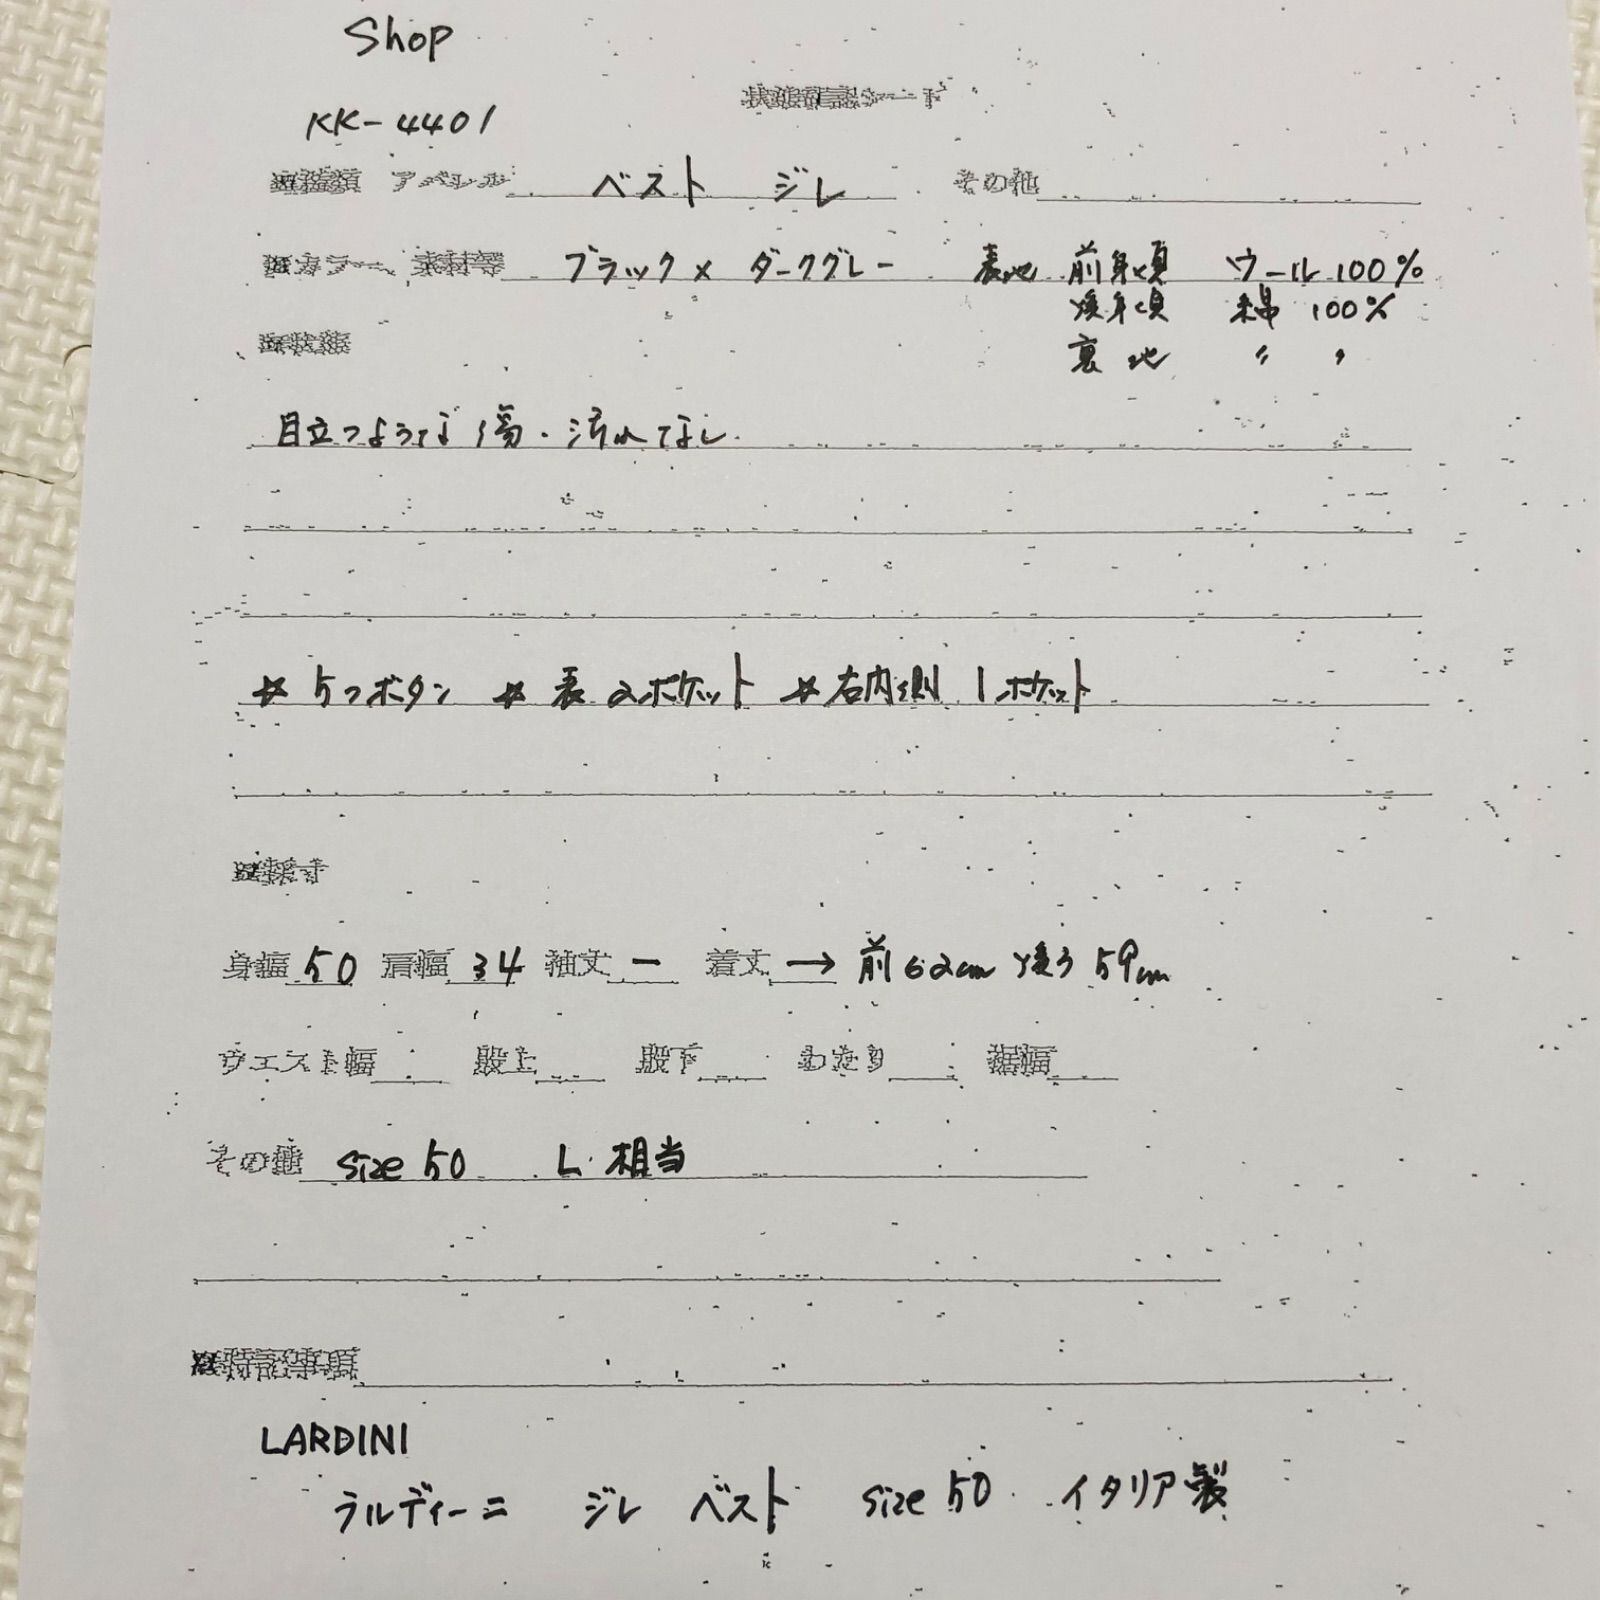 Shop
状態確認シート
KK-4401
種類 アパレル ベスト ジレ その他
カラー、素材等 ブラック× ダークグレー 表地 前身頃 ウール 100%
後身頃 綿 100%
裏地 〃 〃
状態
目立つような傷・汚れてなし
* 5つボタン * 表 2ポケット * 右内側 1ポケット
採寸
身幅 50 肩幅 34 袖丈 ー 着丈 → 前62cm 後ろ59cm
ウエスト幅 股上 股下 わたり 裾幅
その他 size 50 L 相当
特記事項
LARDINI
ラルディーニ ジレ ベスト size 50 イタリア製